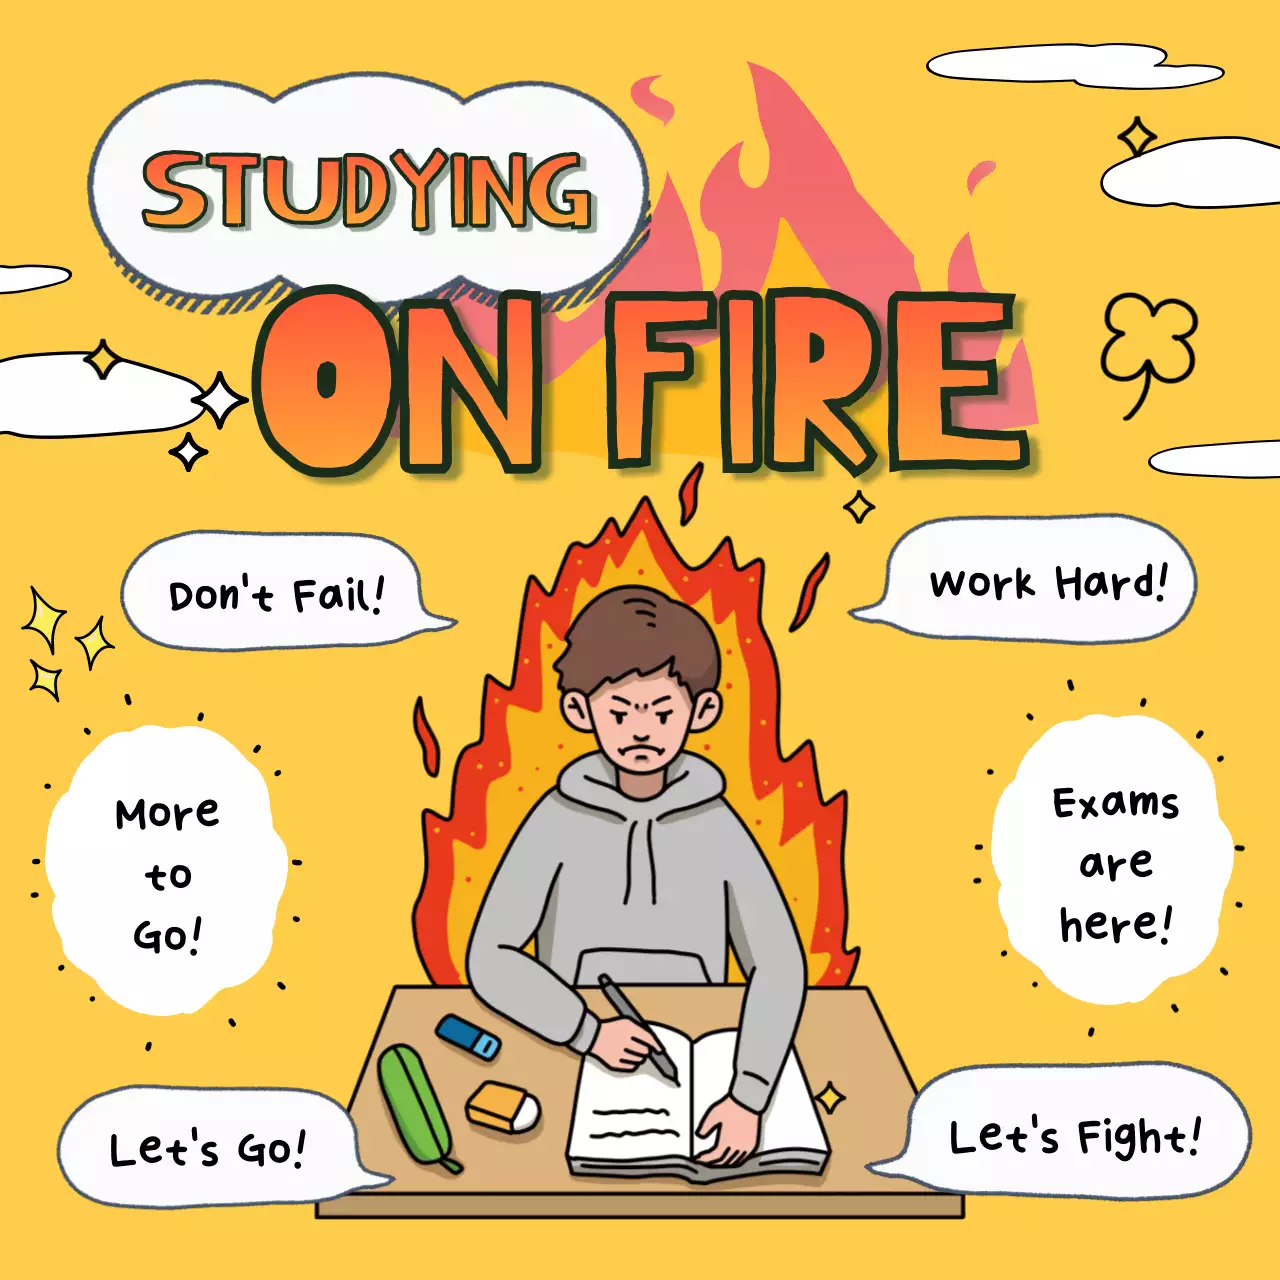 STUDYING
ON FIRE
Don't Fail!
Work Hard!
More
to
Go!
Exams
are
here!
Let's Go!
Let's Fight!